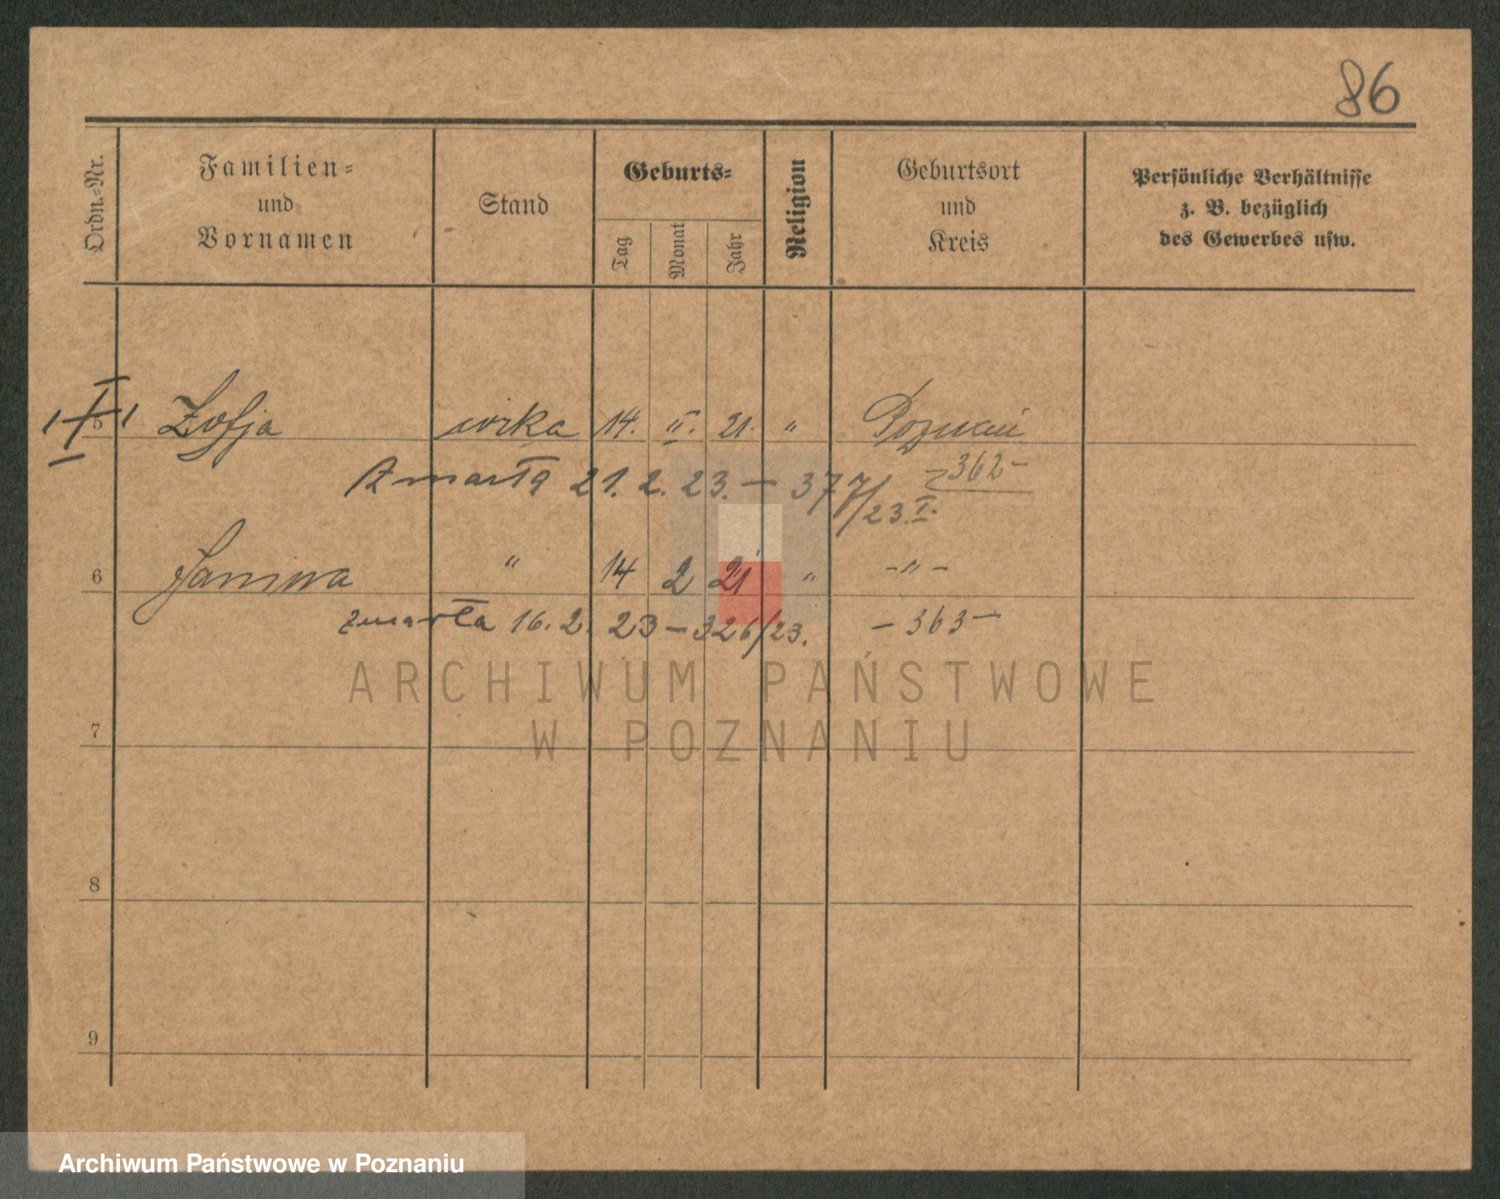 86
Ordn.-Nr.
Familien-
und
Vornamen
Stand
Geburts-
Tag
Monat
Jahr
Religion
Geburtsort
und
Kreis
Persönliche Verhältnisse
z. B. bezüglich
des Gewerbes usw.
5 Zofja córka 14. II. 21. " Poznań
Zmarła 21. 2. 23. — 377/23 I. 362 —
6 Janina " 14 2 21 " - " -
zmarła 16. 2. 23 — 326/23. — 363 —
ARCHIWUM PAŃSTWOWE
W POZNANIU
7
8
9
Archiwum Państwowe w Poznaniu